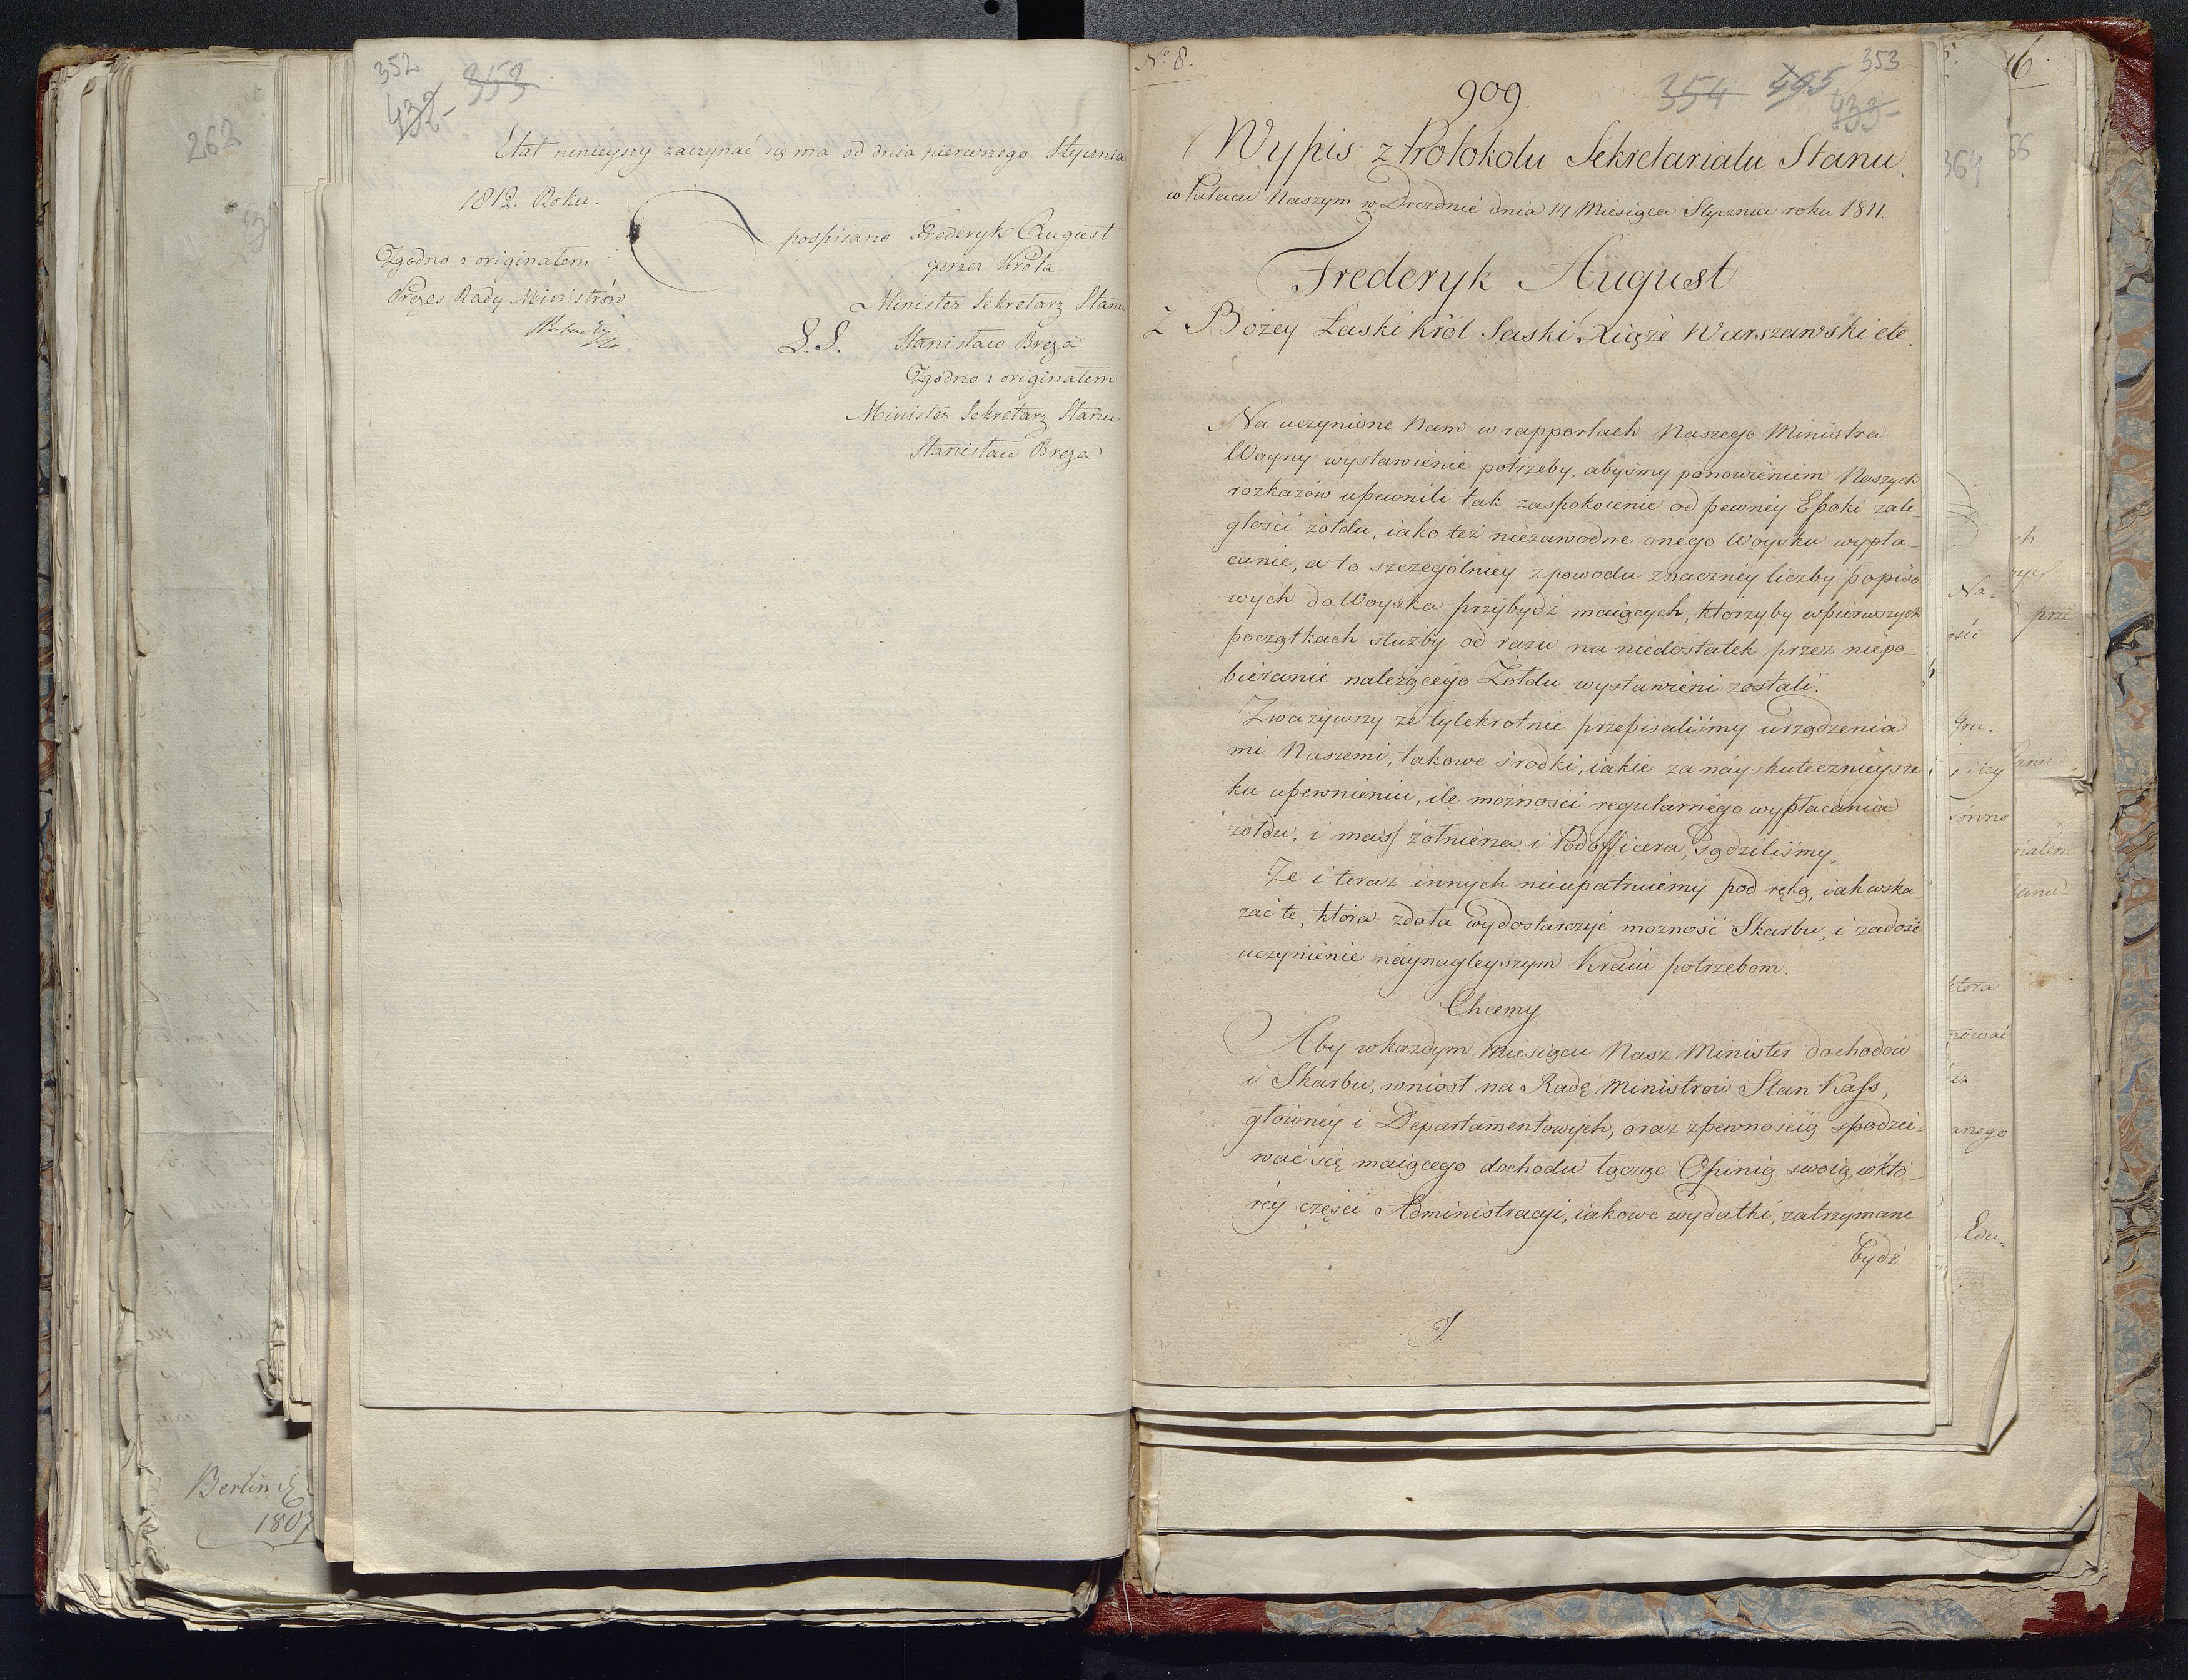 352
353
432
Etat ninieyszy zaczynać się ma od dnia pierwszego Stycznia
1812. Roku.
podpisano Frederyk August
przez Króla
Minister Sekretarz Stanu
L. S. Stanisław Breza
Zgodno z originałem
Minister Sekretarz Stanu
Stanisław Breza
Zgodno z originałem
Prezes Rady Ministrów
262
Berlin
1807
No 8.
909.
354
353
433
Wypis z Protokołu Sekretariatu Stanu.
w Pałacu Naszym w Dreznie dnia 14 Miesiąca Stycznia roku 1811.
Frederyk August
Z Bożey Łaski Król Saski, Xiąże Warszawski etc.
Na uczynione Nam w rapportach Naszego Ministra
Woyny wystawienie potrzeby, abyśmy ponowieniem Naszych
rozkazów upewnili tak zaspokoienie od pewnéy Epoki zale-
głości żołdu, iako też niezawodne onego Woysku wypła-
canie, a to szczególniey z powodu znacznéy liczby popiso
wych do Woyska przybydź maiących, którzyby w pierwszych
początkach służby od razu na niedostatek przez niepo-
bieranie należącego Żołdu wystawieni zostali.
Zważywszy że tylekrotnie przepisaliśmy urządzenia
mi Naszemi, takowe środki, iakie za náyskutecznieysze
ku upewnieniu, ile możności regularnégo wypłacania
żołdu, i mass żołnierza i Podofficera, sądziliśmy.
Że i teraz innych nieupatruiemy pod ręką, iak wska
zać te, która zdoła wydostarczyć możność Skarbu, i zadość
uczynienie náynagleyszym Kraiu potrzebom.
Chcemy
Aby w każdym Miesiącu Nasz Minister dochodów
i Skarbu, wniost na Radę Ministrów Stan Kass,
główney i Departamentowych, oraz z pewnością spodzie-
wać się maiącego dochodu łącząc Opinią swoią, w któ-
réy części Administracyi, iakowe wydatki, zatrzymane
bydź
364